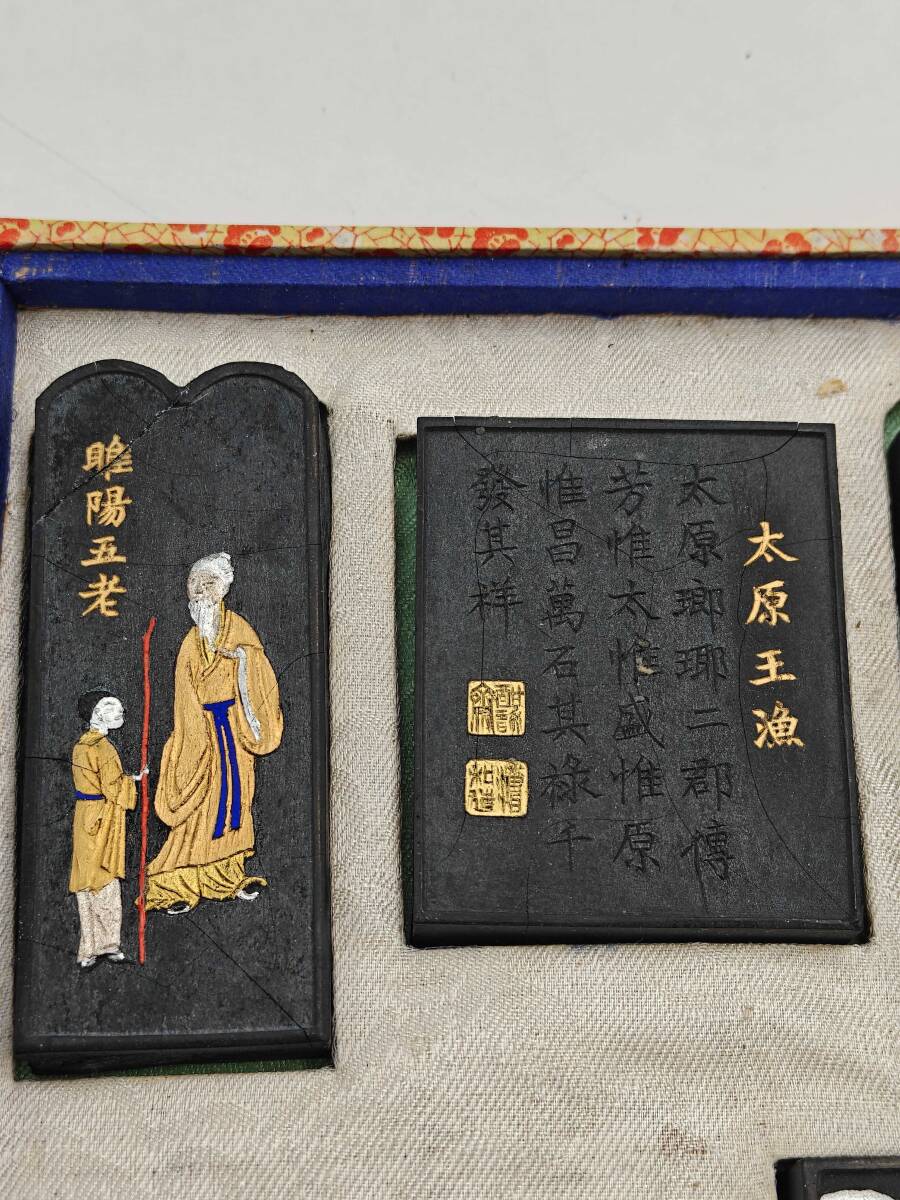 睢陽五老
太原王漁
太原瑯琊二郡傳
芳惟太惟盛惟原
惟昌萬石其祿千
發其祥